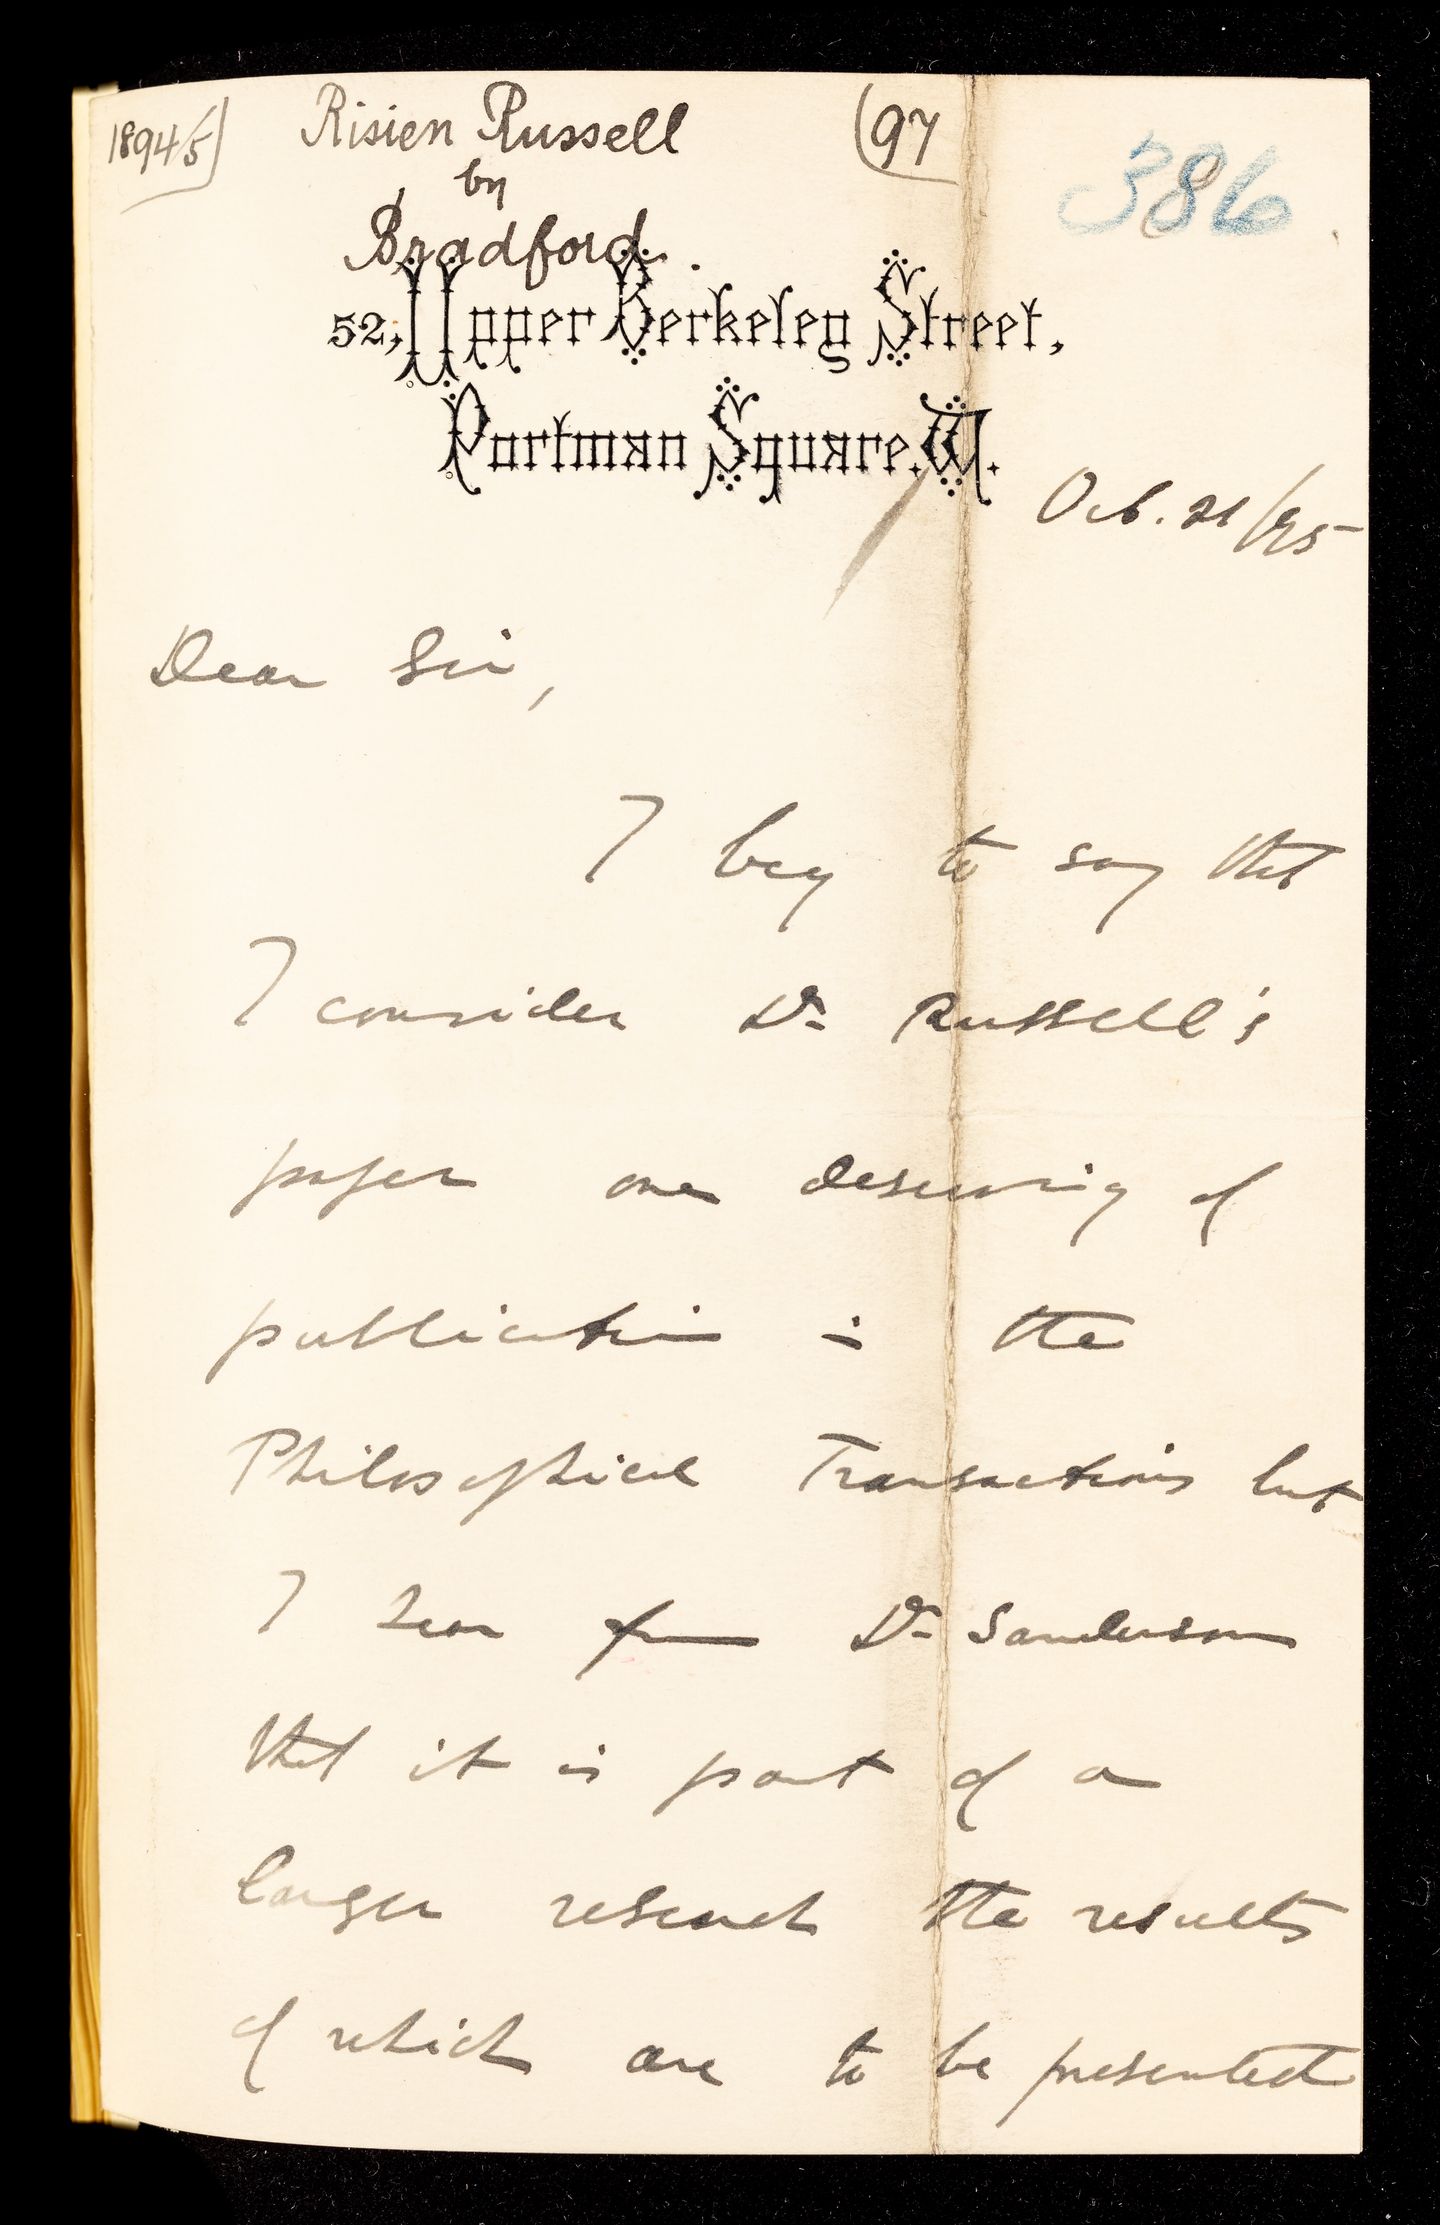 1894/5) Risien Russell (97 386
by
Bradford.
52, Upper Berkeley Street,
Portman Square. W.
Oct. 21/95
Dear Sir,
I beg to say that
I consider Dr Russell's
paper one deserving of
publication in the
Philosophical Transactions but
I hear from Dr Sanderson
that it is part of a
larger research the results
of which are to be presented